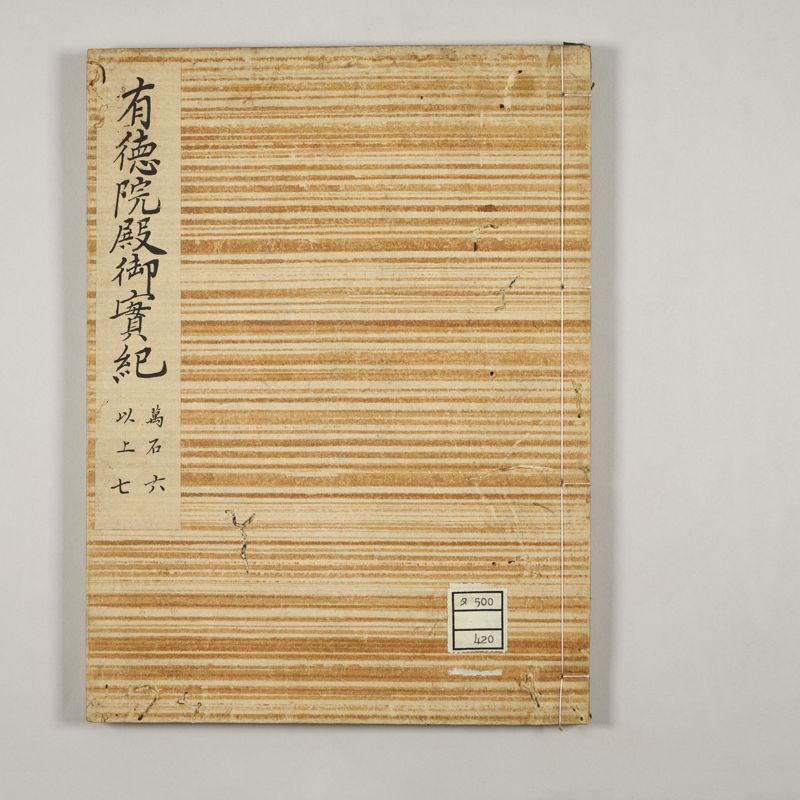 有徳院殿御實紀
萬石 六
以上 七
タ 500
420